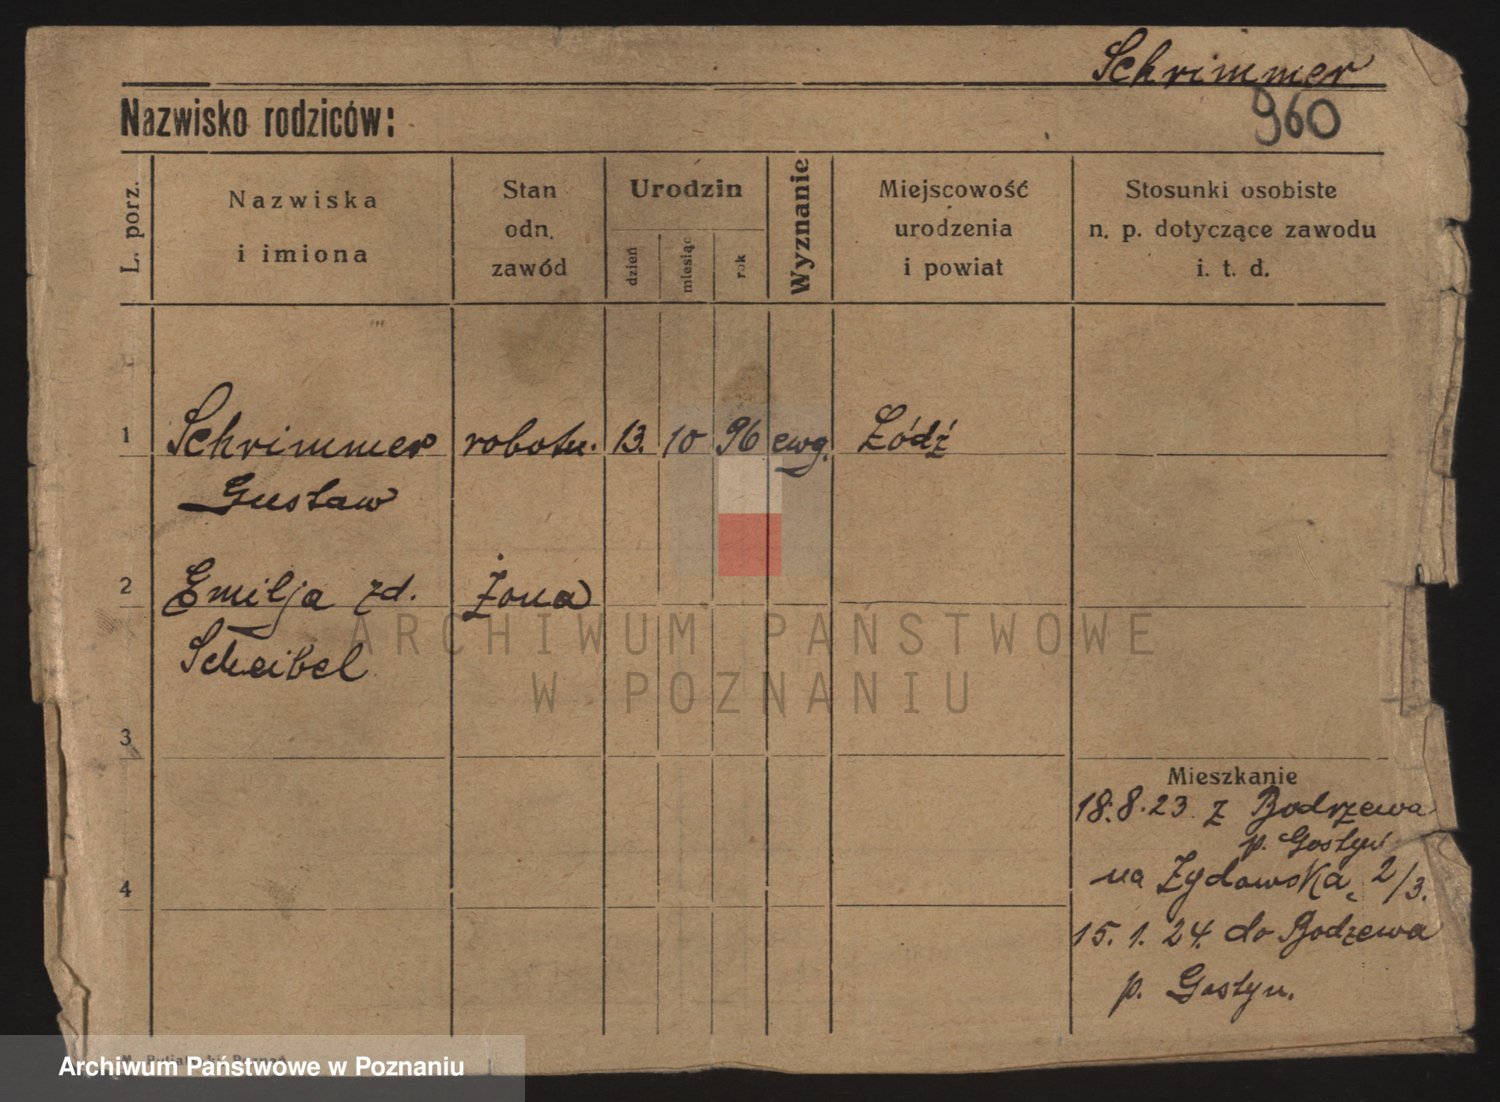 Schrimmer
Nazwisko rodziców:
960
L. porz.
Nazwiska
i imiona
Stan
odn.
zawód
Urodzin
dzień
miesiąc
rok
Wyznanie
Miejscowość
urodzenia
i powiat
Stosunki osobiste
n. p. dotyczące zawodu
i. t. d.
1 Schrimmer robotn. 13. 10 96 ewg. Łódź
Gustaw
2 Emilja zd. Żona
Scheibel
ARCHIWUM PAŃSTWOWE
W POZNANIU
3
Mieszkanie
18.8.23 z Bodrzewa
p. Gostyń
4
na Żydowską 2/3.
15. 1. 24. do Bodzewa
p. Gostyn.
Archiwum Państwowe w Poznaniu